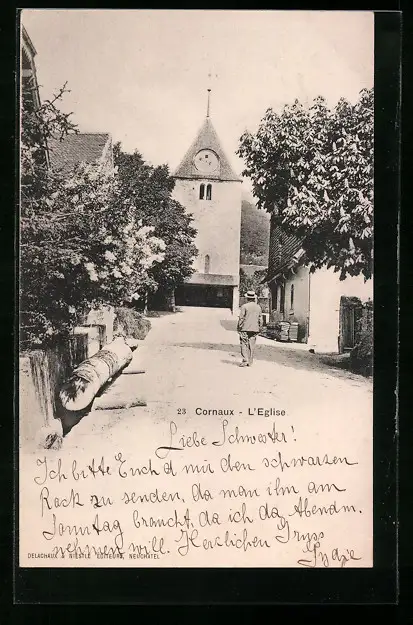 23 Cornaux - L'Eglise
Liebe Schwester!
Ich bitte Euch mir den schwarzen
Rock zu senden, da man ihn am
Sonntag braucht, da ich da Abendm.
nehmen will. Herzlichen Gruss
DELACHAUX & NIESTLÉ EDITEURS, NEUCHATEL